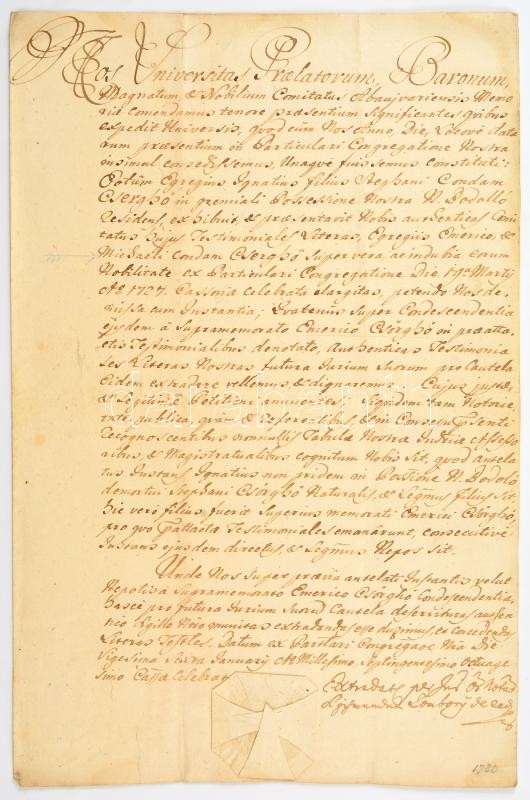 Nos Universitas Prælatorum, Baronum,
Magnatum, & Nobilium Comitatus Abaujvariensis Memo
riæ comendamus tenore præsentium significantes quibus
expedit Universis, quod cum Nos Anno, Die, Locove data
rum præsentium in Particulari Congregatione Nostra
insimul consedissemus, Unaqve fuissemus constituti:
Egregius Ignatius filius Stephani Condam
Csergheö in gremiali Possessione Nostra N. Dodolló
residens, exhibuit, & præsentavit Nobis authenticas Comi
tatus hujus Testimoniales Literas, Egregiis Emerico, &
Michaeli condam Cserghö super vera, ac indubia eorum
Nobilitate ex Particulari Congregatione Die Martij
Ao 1727. Cassoviæ Celebrata elargitas, petendo Nos de
missa cum Instantia; Quatenus super Condescendentia
ejusdem à Supramemorato Emerico Cserghö in præatta
ctis Testimonialibus denotato, Authenticas Testimonia
les Literas Nostras futura Jurium Suorum pro Cautela
Eidem extradare vellemus, & dignaremur. Cujus justæ,
& Legitimæ Petitioni annuentes. Siquidem tam Notorie,
publica, & Referentibus,
recognoscentibus nonnullis Tabulæ Nostræ Judriæ Assesso
ribus, & Magistratualibus cognitum Nobis sit, quod antela
tus Instans Ignatius non pridem in Possione N. Dodoló
demortui Stephani Cserghö Naturalis, & Legmus filius sit,
hic vero filius fuerit superius memorati Emerici Cserghö,
pro quo Testimoniales emanarunt, consecutive
Instans ejusdem directus, & Legmus Nepos sit.
Unde Nos super præviâ antelati Instantis velut
Nepotis à Supramemorato Emerico Cserghö Condescendentia,
hasce pro futura Jurium Suorū Cautela
Sigillo munitas extradandas esse duximus, et concedendas
Literas Datum ex Congregaōe Nrâ Die
Vigesima Sexta January Ao Millesimo Septingentesimo Octuage
simo Celebrata
Extradat per Jur
Sigismundum
1780